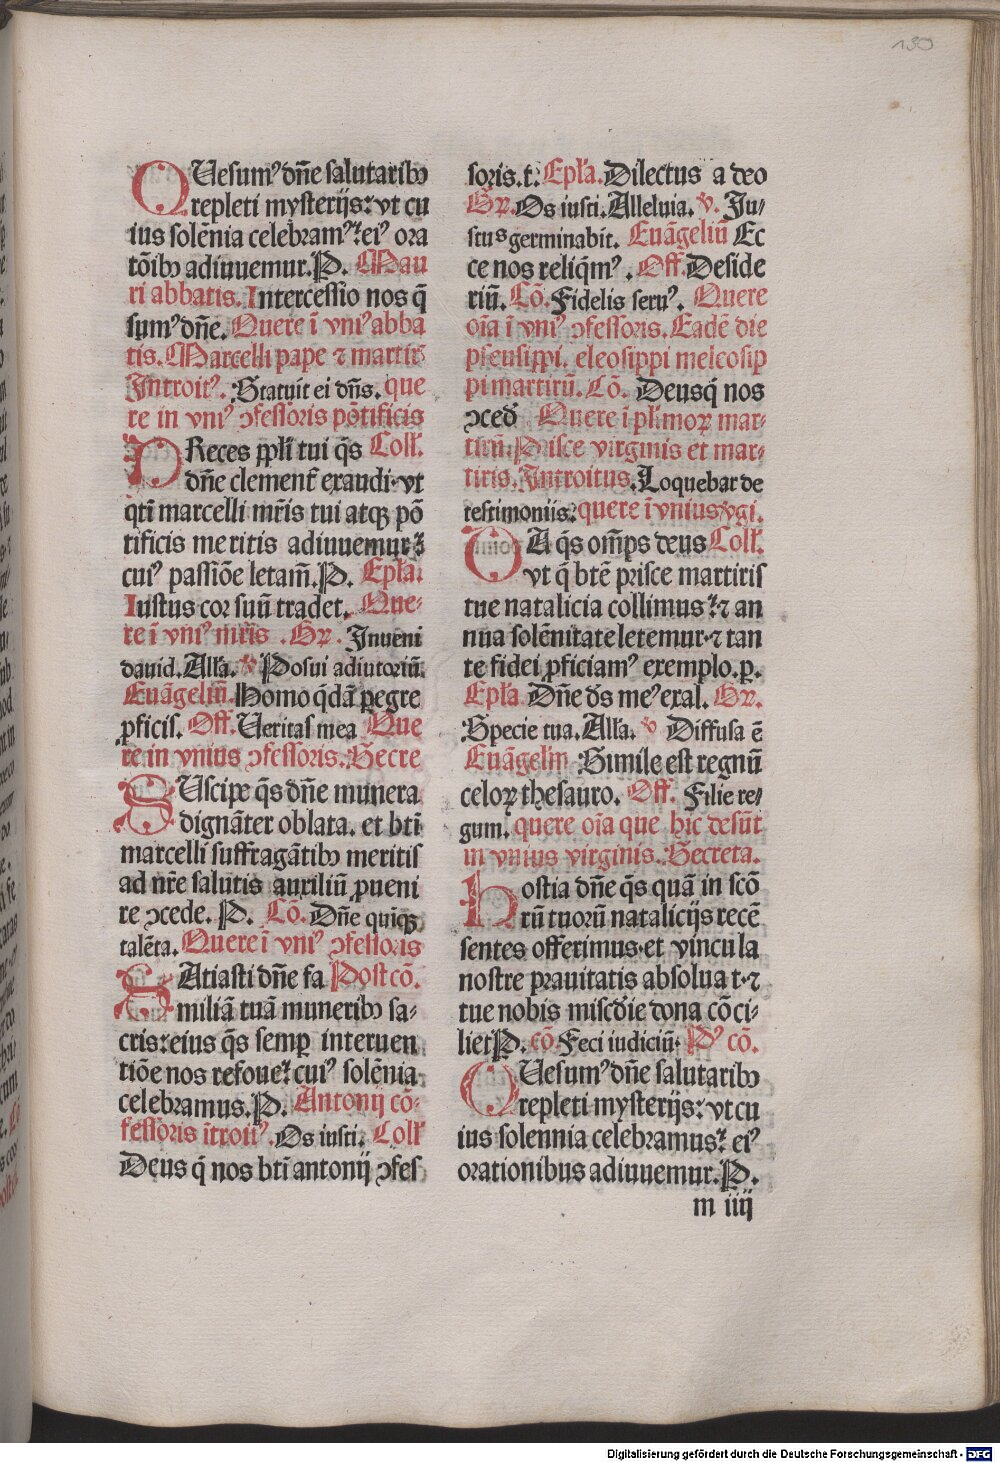 130
QUesumꝰ dn̄e salutaribꝫ
repleti mysterijs: vt cu
ius solēnia celebramꝰ: eiꝰ ora
tōibꝫ adiuuemur. P. Mau
ri abbatis. Intercessio nos q̄
sumꝰ dn̄e. Quere ī vniꝰ abba
tis. Marcelli pape ⁊ martir̄
Introitꝰ. Statuit ei dn̄s. que
re in vniꝰ ɔfessoris pōtificis
PReces ppl̄i tui q̄s Coll̄.
dn̄e clement̄ exaudi· vt
q̄ti marcelli mr̄is tui atqꝫ pō
tificis meritis adiuuemur:
cuiꝰ passiōe letam̄. P. Epl̄a.
Iustus cor suū tradet. Que-
re ī vniꝰ mr̄is. Gr̄. Inueni
dauid. All̄a. ℣ Posui adiutoriū.
Euāgeliū. Homo q̄dā pegre
ꝓficis. Off. Veritas mea Que
re in vnius ɔfessoris. Secre
SUscipe q̄s dn̄e munera
dignāter oblata. et bt̄i
marcelli suffragātibꝫ meritis
ad nr̄e salutis auxiliū ꝓueni
re ɔcede. P. Cō. Dn̄e quiqꝫ
talēta. Quere ī vniꝰ ɔfessoris
SAtiasti dn̄e fa Postcō.
miliā tuā muneribꝫ sa-
cris: eius q̄s semꝑ interuen
tiōe nos refoue: cuiꝰ solēnia
celebramus. P. Antonij cō-
fessoris ītroitꝰ. Os iusti. Coll̄
Deus q̄ nos bt̄i antonij ɔfes
soris. t. Epl̄a. Dilectus a deo
Gr̄. Os iusti. Alleluia. v. Iu-
stus germinabit. Euāgeliū Ec
ce nos reliq̄mꝰ. Off. Deside
riū. Cō. Fidelis seruꝰ. Quere
oīa ī vniꝰ ɔfessoris. Eadē die
pseusippi. eleosippi meleosip
pi martirū. Cō. Deus q̄ nos
ɔced̄ Quere ī pl̄imoꝝ mar-
tirū. Prisce virginis et mar-
tiris. Introitus. Loquebar de
testimoniis: quere ī vnius vgi.
DA q̄s om̄ps deus Coll̄.
vt q̄ btē prisce martiris
tue natalicia collimus: ⁊ an
nua solēnitate letemur· ⁊ tan
te fidei ꝓficiamꝰ exemplo. p.
Epl̄a. Dn̄e d̄s meꝰ exal. Gr̄.
Specie tua. All̄a. v Diffusa ē
Euāgeliū Simile est regnū
celoꝝ thesauro. Off. Filie re-
gum. quere oīa que hic desūt
in vnius virginis. Secreta.
Hostia dn̄e q̄s quā in scō
rū tuorū natalicijs recē
sentes offerimus· et vincula
nostre prauitatis absoluat· ⁊
tue nobis misc̄die dona cōci-
liet P. cō. Feci iudiciū· Pꝰ cō.
QUesumꝰ dn̄e salutaribꝫ
repleti mysterijs: vt cu
ius solennia celebramus: eiꝰ
orationibus adiuuemur. P.
m iiij
Digitalisierung gefördert durch die Deutsche Forschungsgemeinschaft - DFG